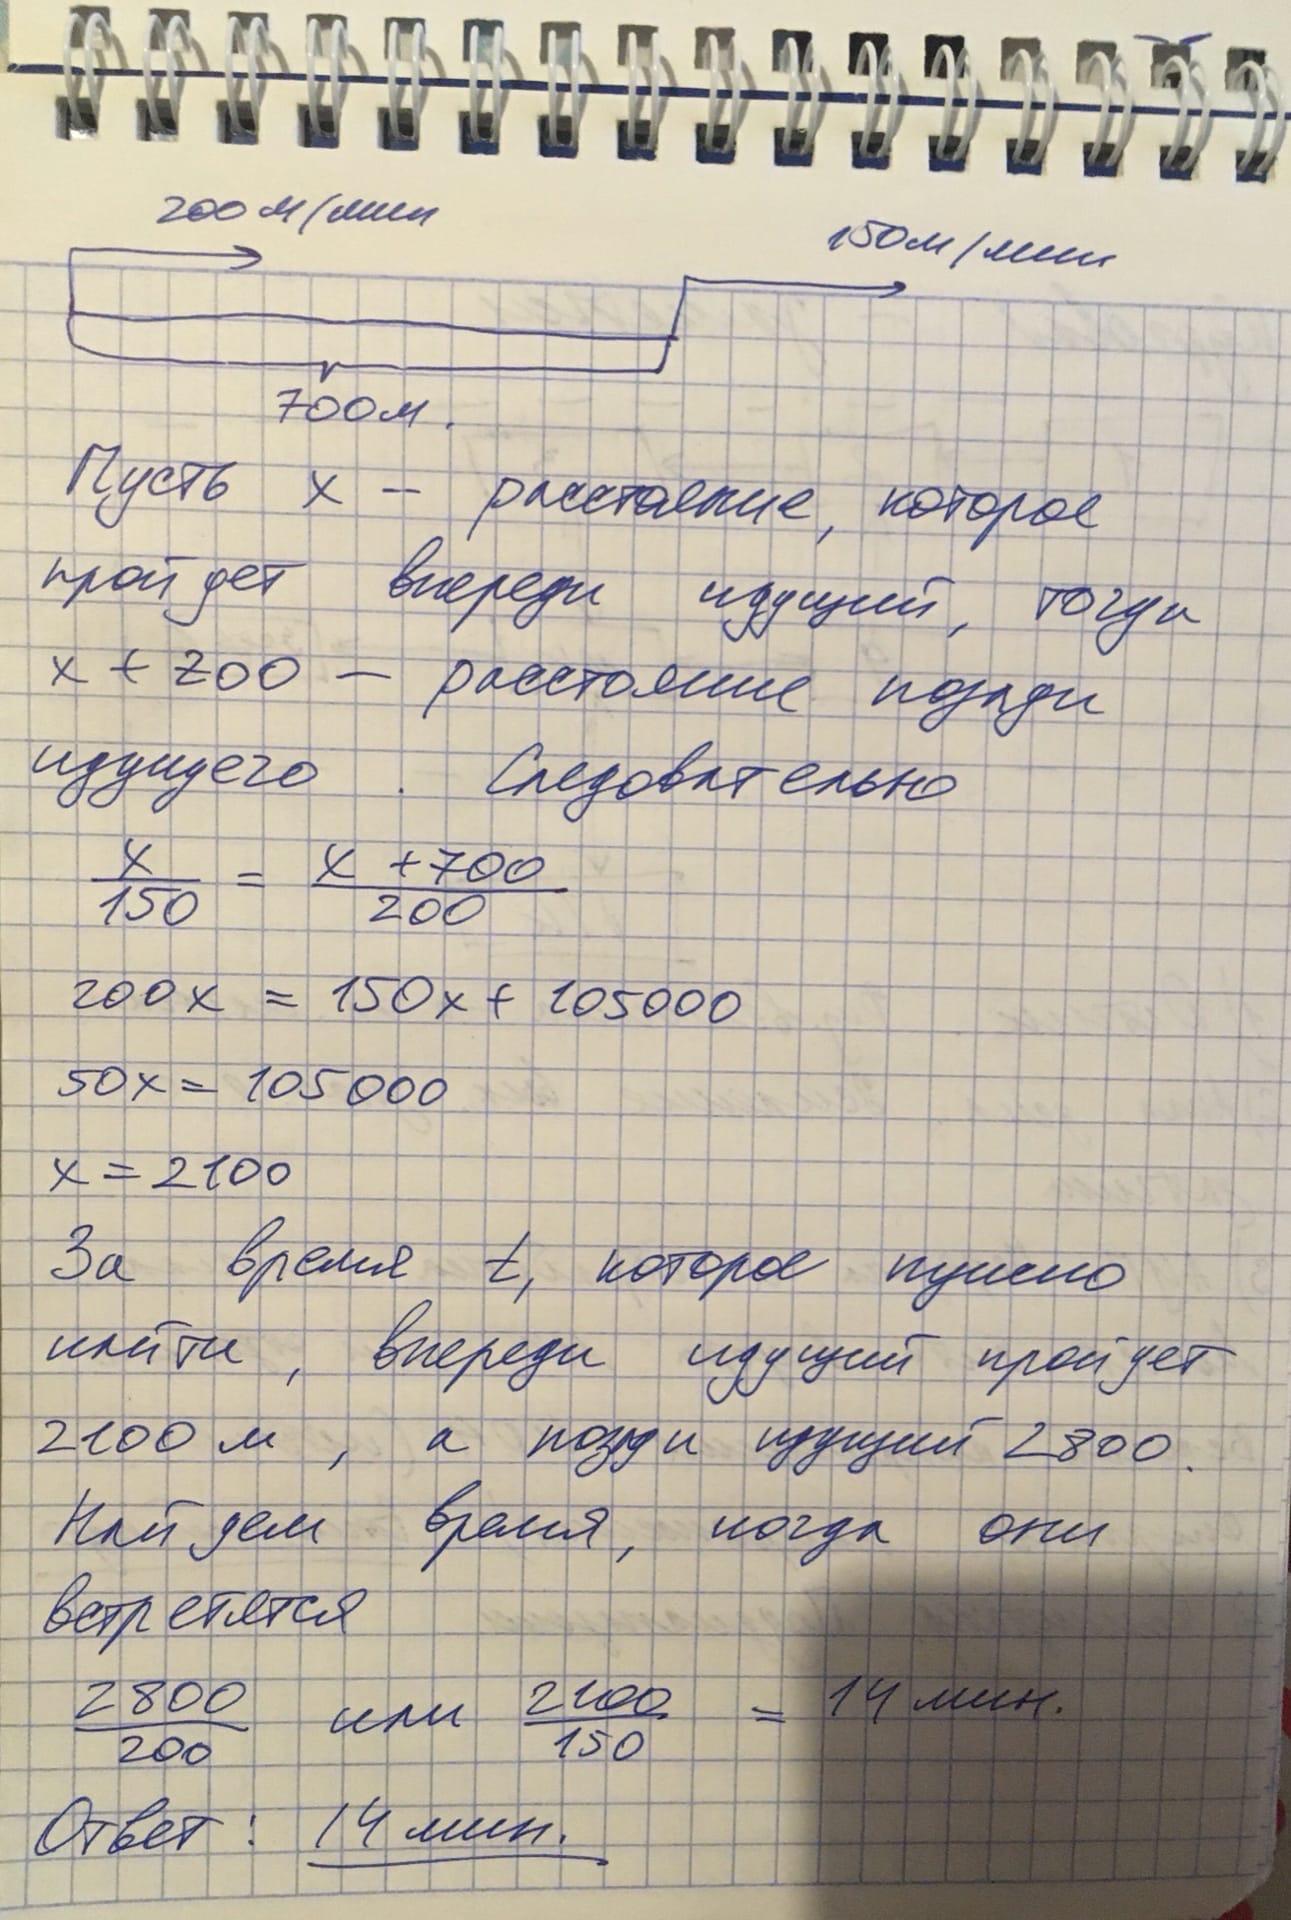 200м/мин
150м/мин
700м.
Пусть x – расстояние, которое
пройдет впереди идущий, тогда
x + 700 – расстояние позади
идущего. Следовательно
x/150 = x + 700/200
200x = 150x + 105000
50x = 105000
x = 2100
За время t, которое нужно
найти, впереди идущий пройдет
2100 м, а позади идущий 2800.
Найдем время, когда они
встретятся
2800/200 или 2100/150 = 14 мин.
Ответ: 14 мин.